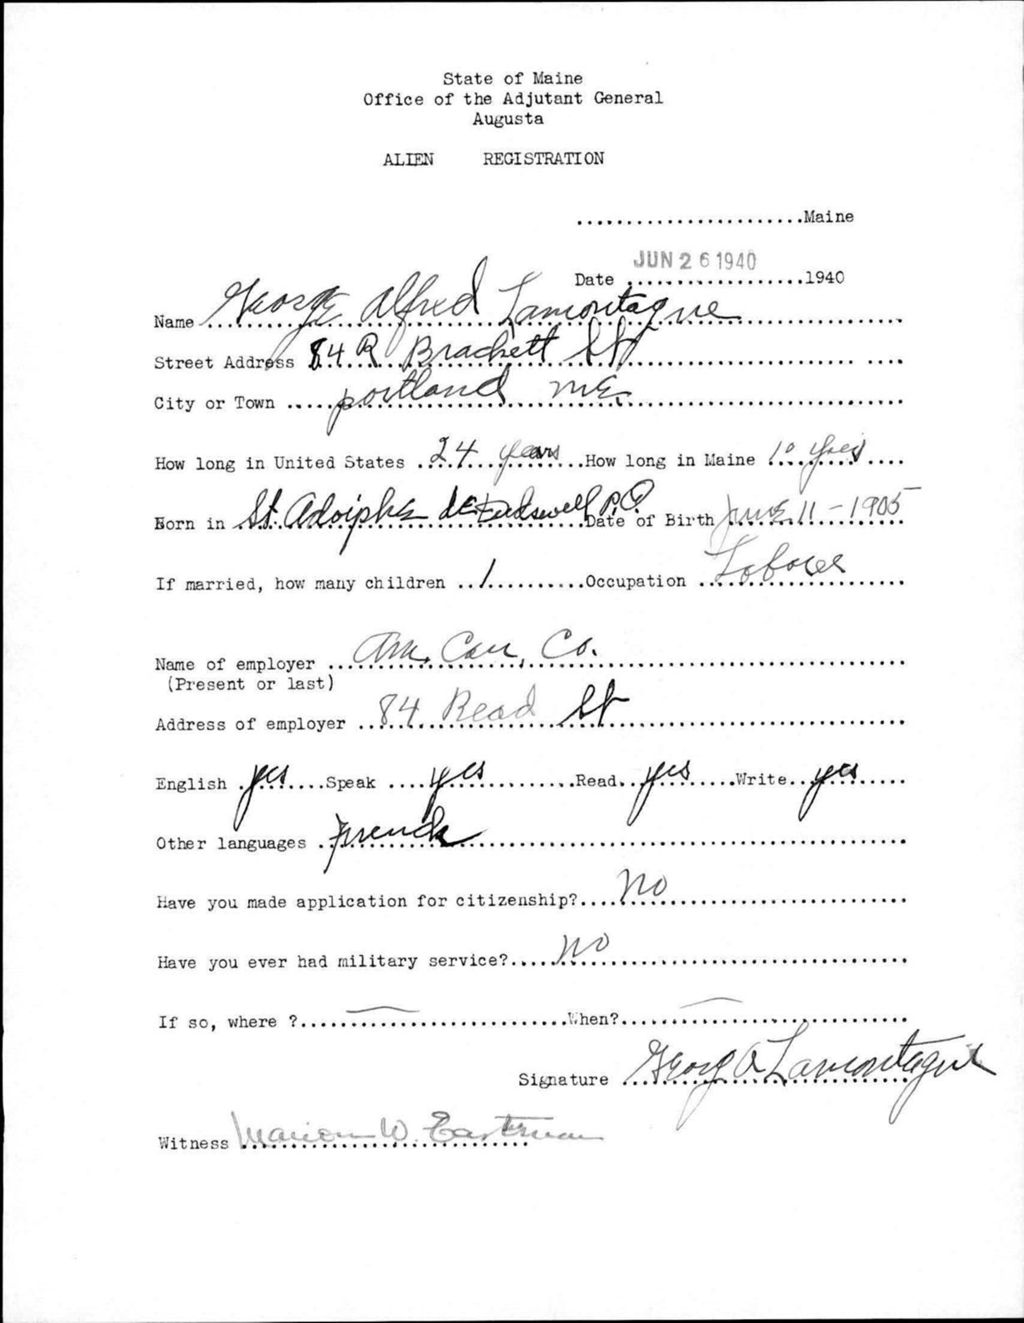 State of Maine
Office of the Adjutant General
Augusta
ALIEN REGISTRATION
.......................Maine
JUN 26 1940
Date ..................1940
Name George Alfred Lamontague
Street Address 84 R Brackett St
City or Town portland ME.
How long in United States 24 years How long in Maine 10 yrs
Born in St. Adolphe de Dudswell P.Q. Date of Birth June 11 - 1905
If married, how many children 1 Occupation Laborer
Name of employer Am. Can. Co.
(Present or last)
Address of employer 84 Read St
English yes Speak yes Read yes Write yes
Other languages French
Have you made application for citizenship? No
Have you ever had military service? No
If so, where ? — When? —
Signature Georg A Lamontague
Witness Marion W. Eastman